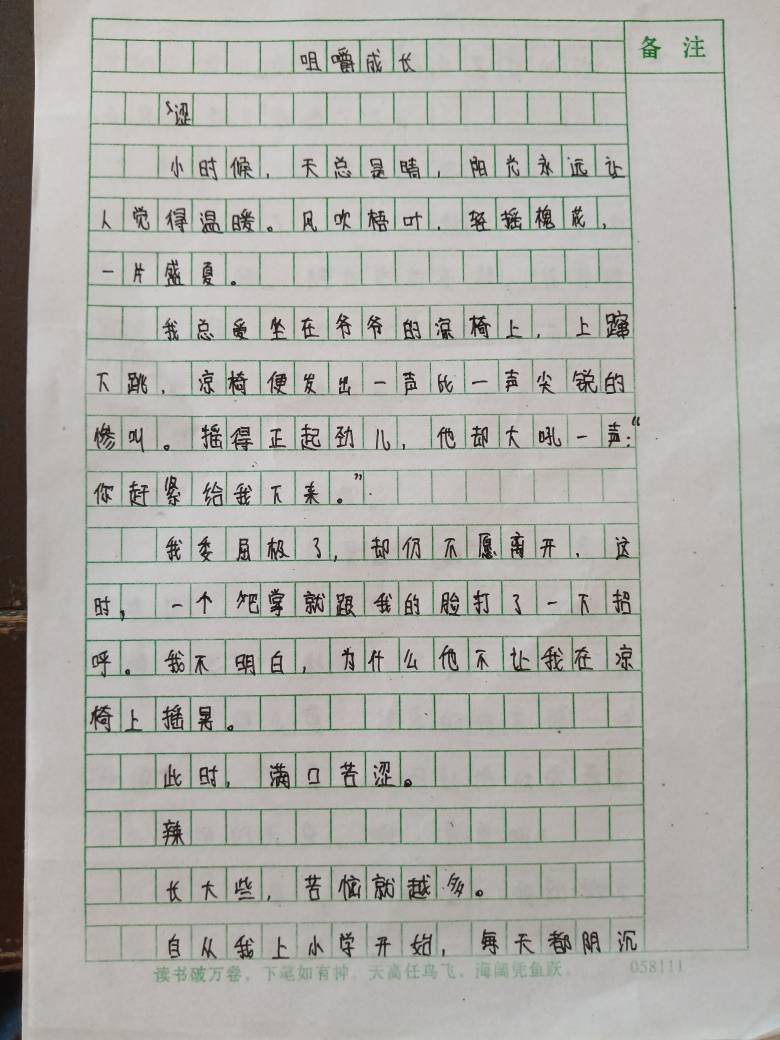 备 注
咀嚼成长
涩
小时候，天总是晴，阳光永远让
人觉得温暖。风吹梧叶，轻摇槐花，
一片盛夏。
我总爱坐在爷爷的凉椅上，上蹿
下跳，凉椅便发出一声比一声尖锐的
惨叫。摇得正起劲儿，他却大吼一声：“
你赶紧给我下来。”
我委屈极了，却仍不愿离开，这
时，一个巴掌就跟我的脸打了一下招
呼。我不明白，为什么他不让我在凉
椅上摇晃。
此时，满口苦涩。
辣
长大些，苦恼就越多。
自从我上小学开始，每天都阴沉
读书破万卷，下笔如有神。天高任鸟飞，海阔凭鱼跃。 058111